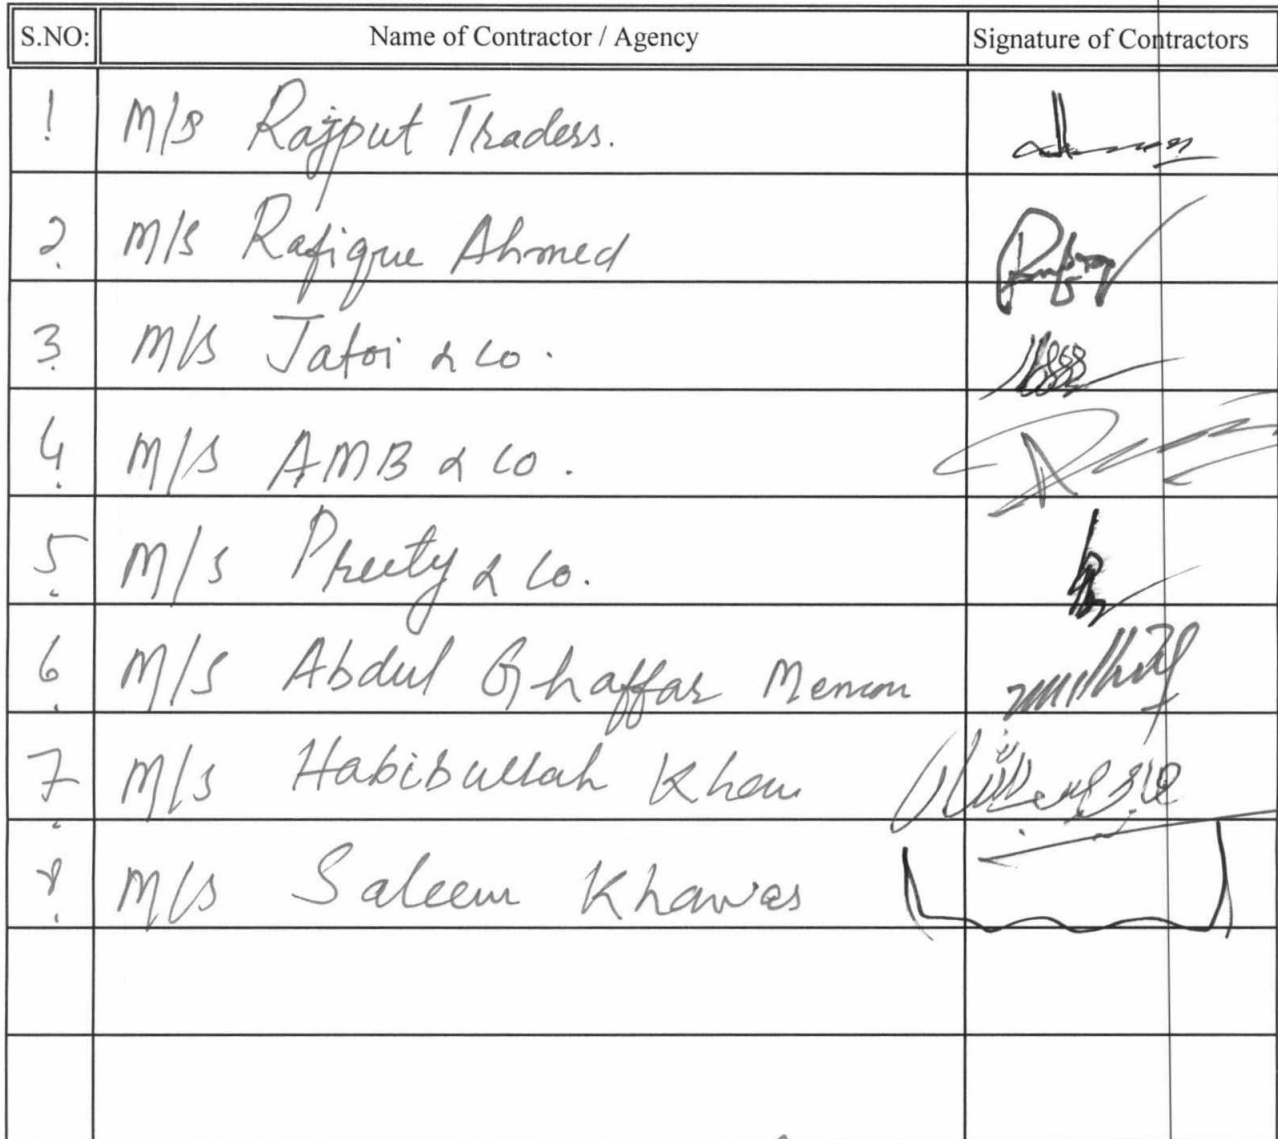 S.NO: Name of Contractor / Agency Signature of Contractors
1 M/S Rajput Traders.
2 M/S Rafique Ahmed
3 M/S Jatoi & Co.
4 M/S AMB & Co.
5 M/S Preety & Co.
6 M/S Abdul Ghaffar Memon
7 M/S Habibullah Khan
8 M/S Saleem Khawas